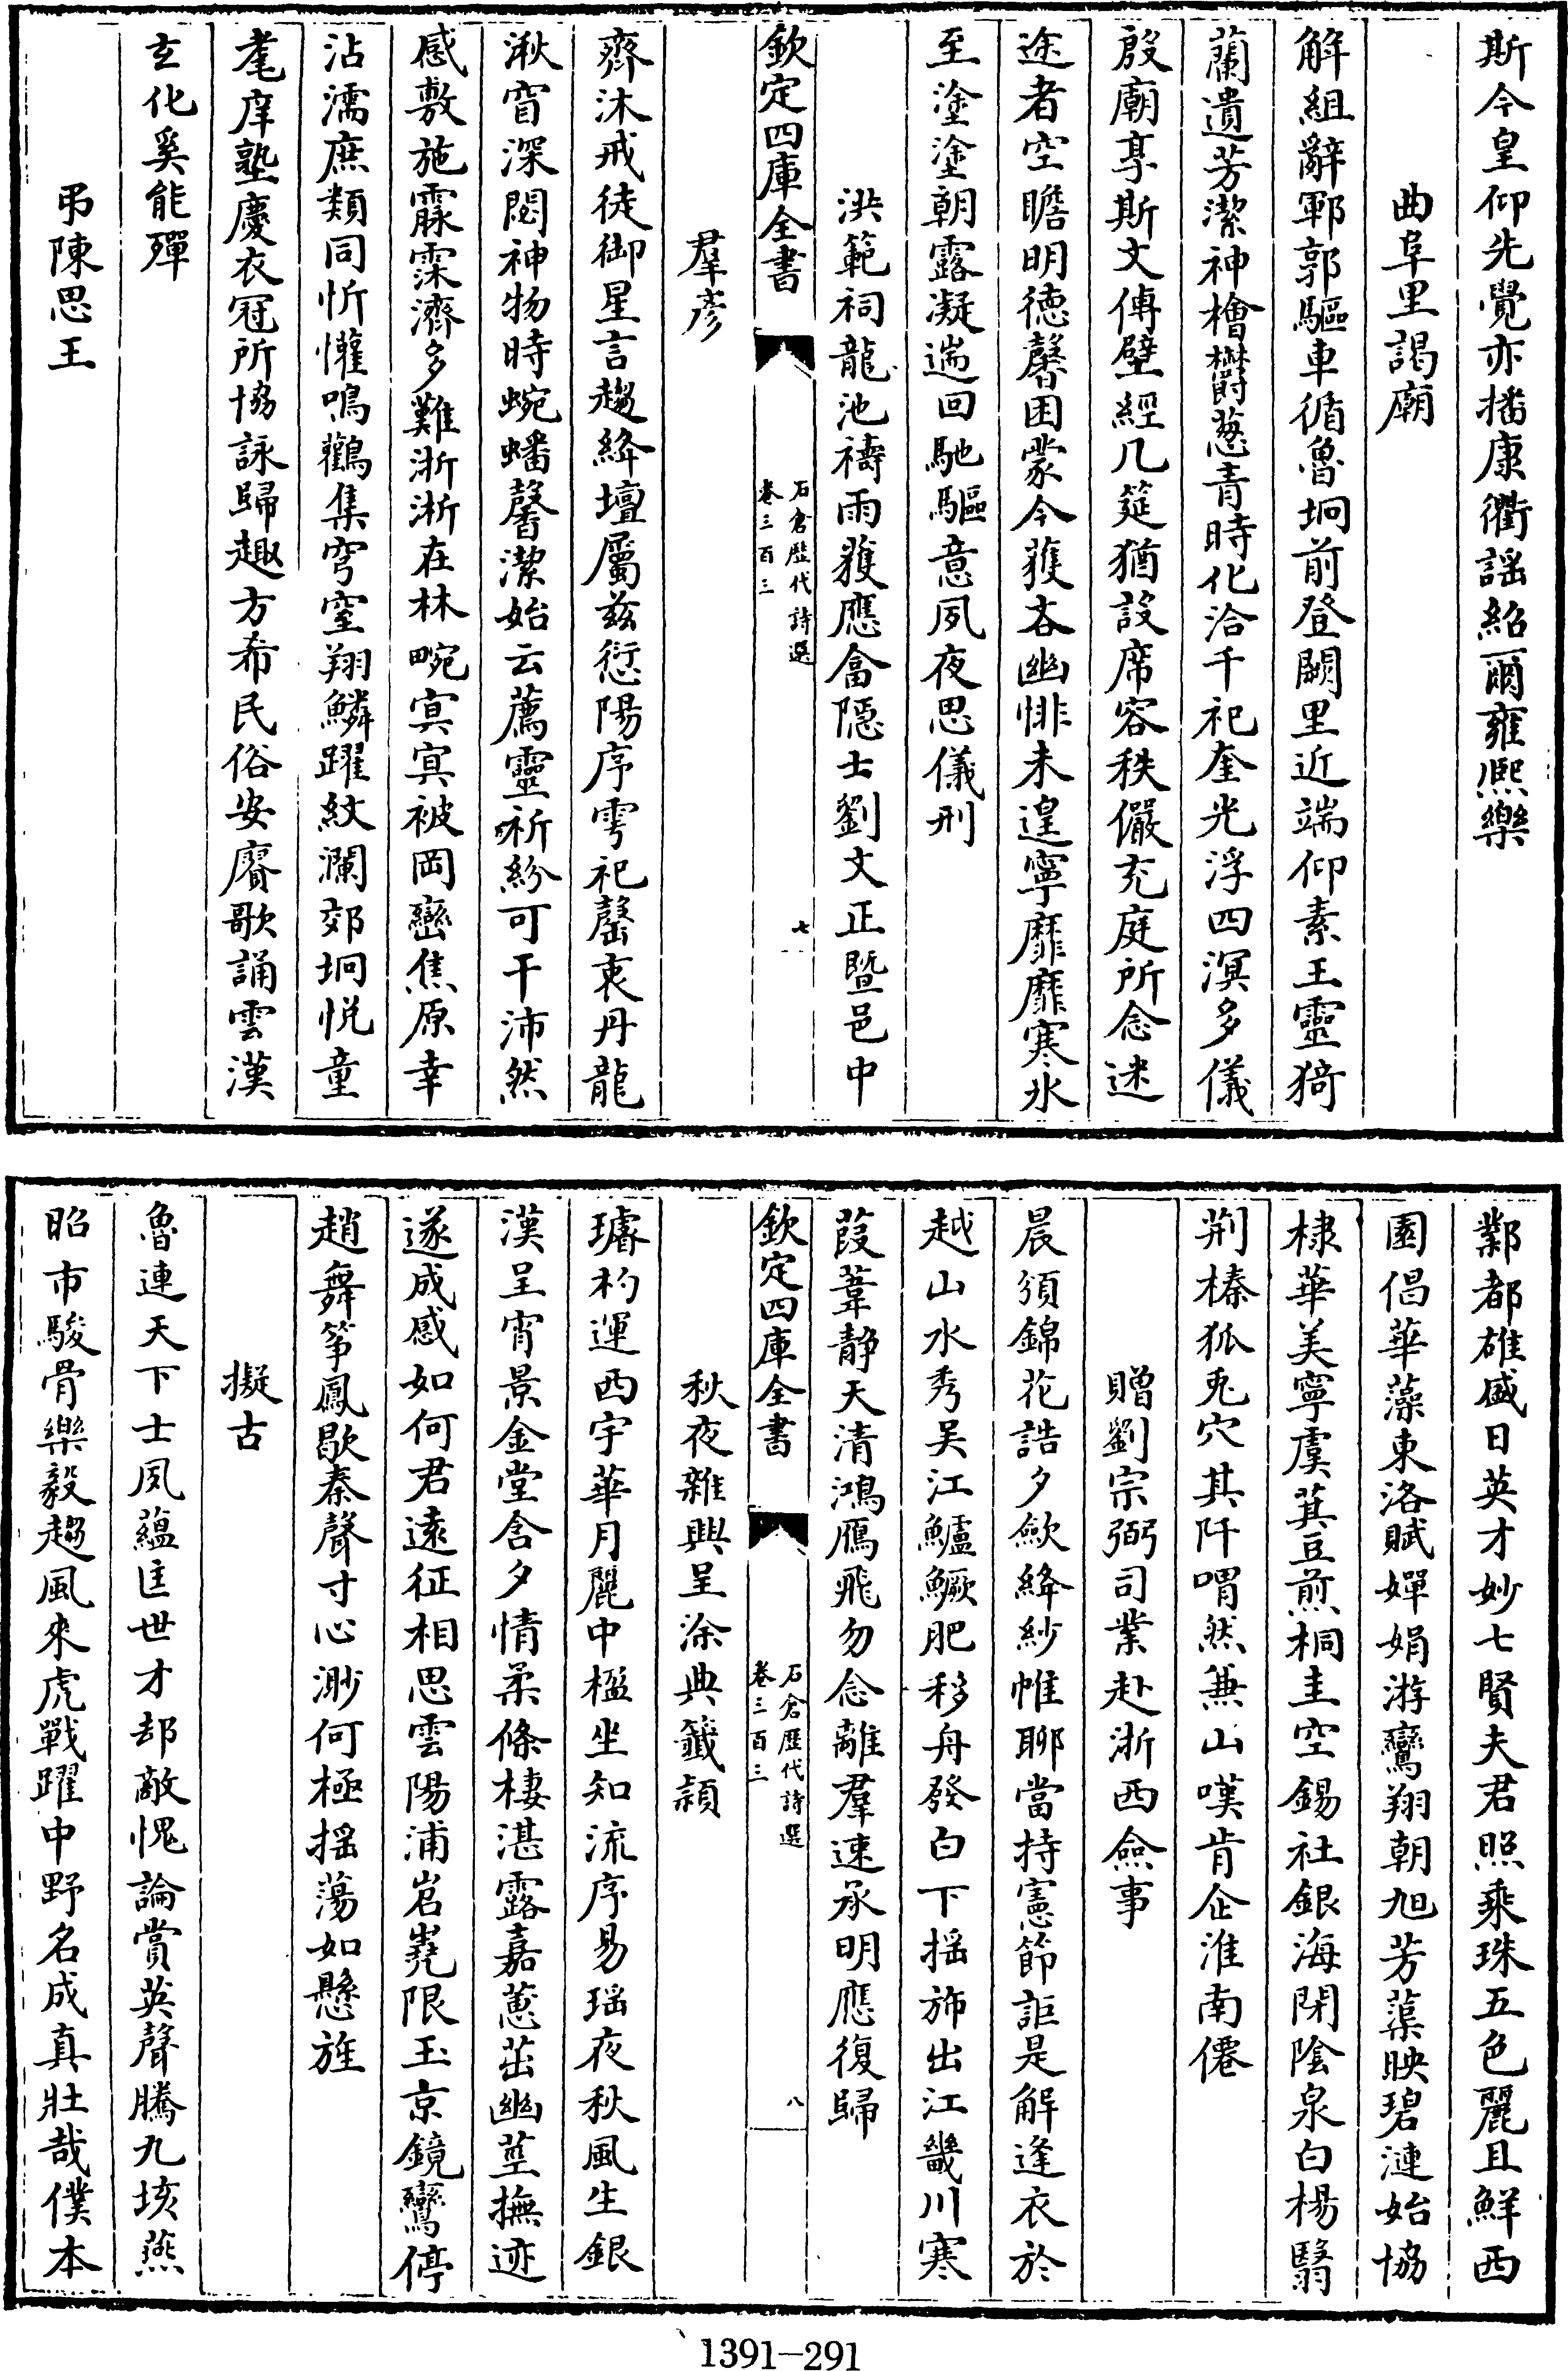 斯今皇仰先覺亦播康衢謡紹爾雍熈樂
曲阜里謁廟
解組辭鄆郭驅車循魯坰前登闕里近端仰素王靈猗
蘭遺芳潔神檜欝葱青時化洽千祀奎光浮四溟多儀
殷廟享斯文傳壁經几筵猶設席容秩儼充庭所念迷
途者空瞻明徳馨困蒙今獲吝幽悱未遑寧靡靡寒氷
至塗塗朝露凝遄回馳驅意夙夜思儀刑
洪範祠龍池禱雨獲應畣隠士劉文正暨邑中
欽定四庫全書
石倉歴代詩選
卷三百三
七
羣彦
齊沐戒徒御星言趨絳壇屬兹愆陽序雩祀罄衷丹龍
湫窅深閟神物時蜿蟠馨潔始云薦靈祈紛可干沛然
感敷施霡霂濟多難淅淅在林畹㝠㝠被岡巒焦原幸
沾濡庶類同忻懽鳴鸛集穹窒翔鱗躍紋瀾郊坰悦童
耄庠塾慶衣冠所協詠歸趣方希民俗安賡歌誦雲漢
𤣥化奚能殫
弔陳思王
鄴都雄盛日英才妙七賢夫君照乘珠五色麗且鮮西
園倡華藻東洛賦嬋娟游鸞翔朝旭芳蕖映碧漣始協
棣華美寧虞萁豆煎桐圭空錫社銀海閉陰泉白楊翳
荆榛狐兎穴其阡喟然兼山嘆肯企淮南僊
贈劉宗弼司業赴浙西僉事
晨頒錦花誥夕歛絳紗帷聊當持憲節詎是解逢衣於
越山水秀吴江鱸鱖肥移舟發白下揺斾出江畿川寒
葭葦静天清鴻鴈飛勿念離羣速承明應復歸
欽定四庫全書
石倉歴代詩選
卷三百三
八
秋夜雜興呈涂典籖頴
璿杓運西宇華月麗中楹坐知流序易瑶夜秋風生銀
漢呈宵景金堂含夕情柔條棲湛露嘉蕙茁幽莖撫迹
遂成感如何君逺征相思雲陽浦岧嶤限玉京鏡鸞停
趙舞筝鳳歇秦聲寸心渺何極揺蕩如懸旌
擬古
魯連天下士夙藴匡世才却敵愧論賞英聲騰九垓燕
昭市駿骨樂毅趨風來虎戰躍中野名成真壯哉僕本
1391-291